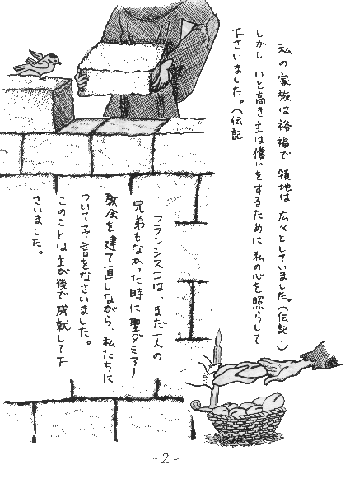 私の家族は裕福で 領地は 広々としていました。(伝記)
しかし いと高き主は償いをするために 私の心を照らして
下さいました。(伝記
フランシスコは、まだ一人の
兄弟もなかった時に聖ダミアノ
教会を建て直しながら、私たちに
ついて予言をなさいました。
このことは主が後で成就して下
さいました。
-2-